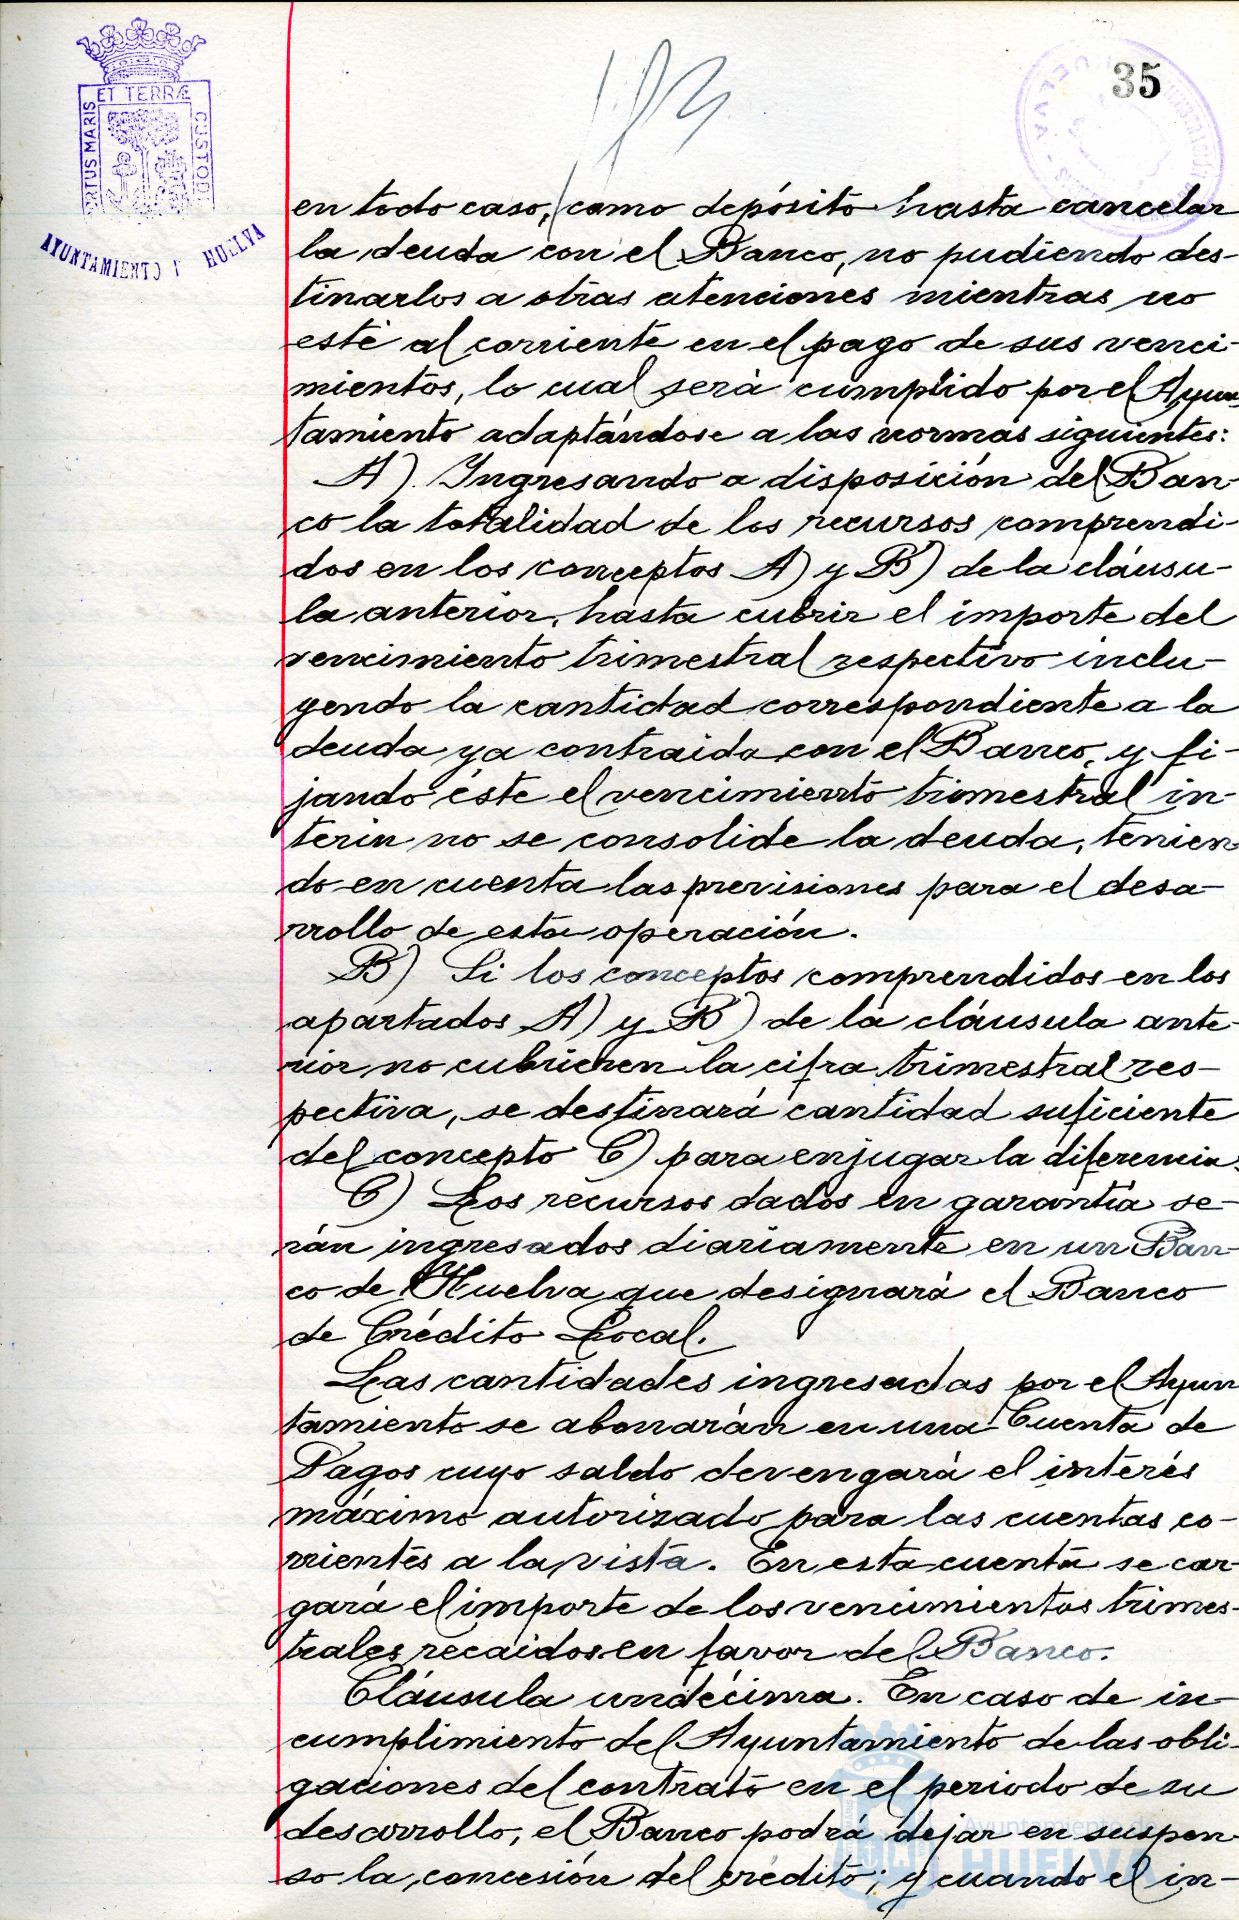 35
ET TERRÆ
ORTUS MARIS
CUSTODI
AYUNTAMIENTO D HUELVA
en todo caso, como depósito hasta cancelar
la deuda con el Banco, no pudiendo des-
tinarlos a otras atenciones mientras no
esté al corriente en el pago de sus venci-
mientos, lo cual será cumplido por el Ayun
tamiento adaptándose a las normas siguientes:
A) Ingresando a disposición del Ban-
co la totalidad de los recursos comprendi-
dos en los conceptos A) y B) de la cláusu-
la anterior, hasta cubrir el importe del
vencimiento trimestral respectivo inclu-
yendo la cantidad correspondiente a la
deuda ya contraida con el Banco, y fi-
jando éste el vencimiento trimestral in-
terin no se consolide la deuda, tenien-
do en cuenta las previsiones para el desa-
rrollo de esta operación.
B) Si los conceptos comprendidos en los
apartados A) y B) de la cláusula ante-
rior no cubrieren la cifra trimestral res-
pectiva, se destinará cantidad suficiente
del concepto C) para enjugar la diferencia.
C) Los recursos dados en garantía se-
rán ingresados diariamente en un Ban-
co de Huelva que designará el Banco
de Crédito Local.
Las cantidades ingresadas por el Ayun
tamiento se abonarán en una Cuenta de
Pagos cuyo saldo devengará el interés
máximo autorizado para las cuentas co-
rrientes a la vista. En esta cuenta se car-
gará el importe de los vencimientos trimes-
trales recaidos en favor del Banco.
Cláusula undécima. En caso de in-
cumplimiento del Ayuntamiento de las obli-
gaciones del contrato en el periodo de su
desarrollo, el Banco podrá dejar en suspen-
so la concesión del crédito; y cuando el in-
Ayuntamiento de
HUELVA